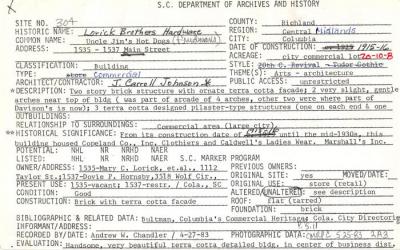 S.C. DEPARTMENT OF ARCHIVES AND HISTORY
SITE NO. 304
HISTORIC NAME: Lorick Brothers Hardware
COMMON NAME: Uncle Jim's Hot Dogs
ADDRESS: 1535 - 1537 Main Street
COUNTY: Richland
REGION: Central Midlands
CITY: Columbia
DATE OF CONSTRUCTION: 1915-16
ACREAGE: city commercial lot
CLASSIFICATION: Building
TYPE: store Commercial
ARCHITECT/CONTRACTOR: J. Carroll Johnson
STYLE: 20th C. Revival - Tudor Gothic
THEME(S): Arts - architecture
PUBLIC ACCESS: unrestricted
DESCRIPTION: Two story brick structure with ornate terra cotta facade; 2 very slight, gentle
arches near top of bldg ( was part of arcade of 4 arches, other two were where part of
Davison's is now); 3 terra cotta designed pilaster-type structures (one on each end & one
OUTBUILDINGS:
RELATIONSHIP TO SURROUNDINGS: Commercial area (large city)
HISTORICAL SIGNIFICANCE: From its construction date until the mid-1930s, this
building housed Copeland Co., Inc. Clothiers and Caldwell's Ladies Wear. Marshall's Inc.
POTENTIAL: NHL NR NRHD NAER
LISTED: NHL NR NRHD NAER S.C. MARKER PROGRAM
OWNER/ADDRESS: 1535-Mary C. Lorick, et.al., 1112
Taylor St.;1537-Dovie P. Hornsby,3518 Wolf Cir.,
PRESENT USE: 1535-vacant; 1537-restr. / Cola., SC
CONDITION: Good
CONSTRUCTION: Brick with terra cotta facade
PREVIOUS OWNERS:
ORIGINAL SITE: yes MOVED/DATE:
ALTERED/UNALTERED: see description
ORIGINAL USE: store (retail)
ROOF: flat (tarred)
FOUNDATION: brick
BIBLIOGRAPHIC & RELATED DATA: Bultman, Columbia's Commercial Heritage Cola. City Directory
INFORMANT/ADDRESS:
RECORDED BY/DATE: Andrew W. Chandler / 4-27-83
PHOTOGRAPHIC DATA:
EVALUATION: Handsome, very beautiful terra cotta detailed bldg. in center of business dist.